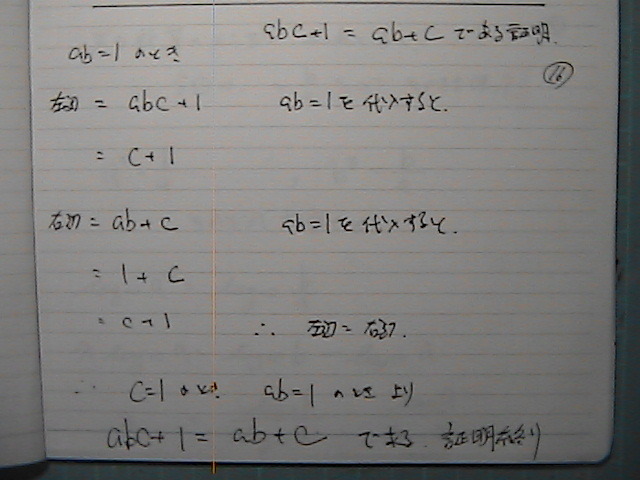 abc+1 = ab+c である証明.
ab=1 のとき
16
左辺 = abc+1 ab=1を代入すると.
= c+1
右辺 = ab+c ab=1を代入すると.
= 1+c
= c+1 ∴ 左辺=右辺.
∴ c=1のとき ab=1のときより
abc+1 = ab+c である. 証明終り